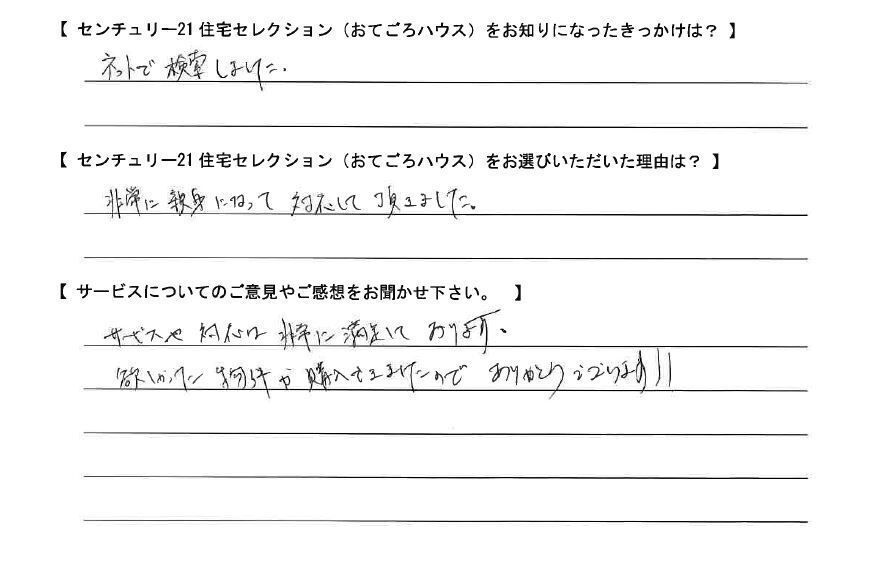 【 センチュリー21 住宅セレクション（おてごろハウス）をお知りになったきっかけは？ 】
ネットで検索しました.
【 センチュリー21 住宅セレクション（おてごろハウス）をお選びいただいた理由は？ 】
非常に親身になって 対応して 頂きました。
【 サービスについてのご意見やご感想をお聞かせ下さい。 】
サービスや 対応は 非常に満足して おります、
欲しかった 物件が 購入できましたので ありがとうございます!!